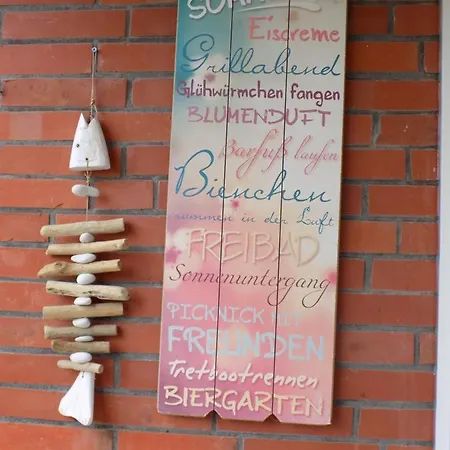 Eiscreme
Grillabend
Glühwürmchen fangen
BLUMENDUFT
Barfuß laufen
Bienchen
summen in der Luft
FREIBAD
Sonnenuntergang
PICKNICK MIT
FREUNDEN
Tretbootrennen
BIERGARTEN